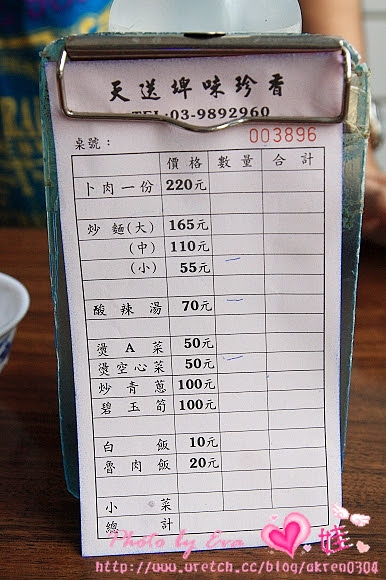 天送埤味珍香
TEL:03-9892960
003896
桌號：
價格 數量 合計
卜肉一份 220元
炒麵(大) 165元
(中) 110元
(小) 55元 一
酸辣湯 70元 一
燙A菜 50元
燙空心菜 50元 一
炒青蔥 100元
碧玉筍 100元
白飯 10元
魯肉飯 20元
小菜
總計
Photo by Eva 娃
http://www.wretch.cc/blog/akren0304